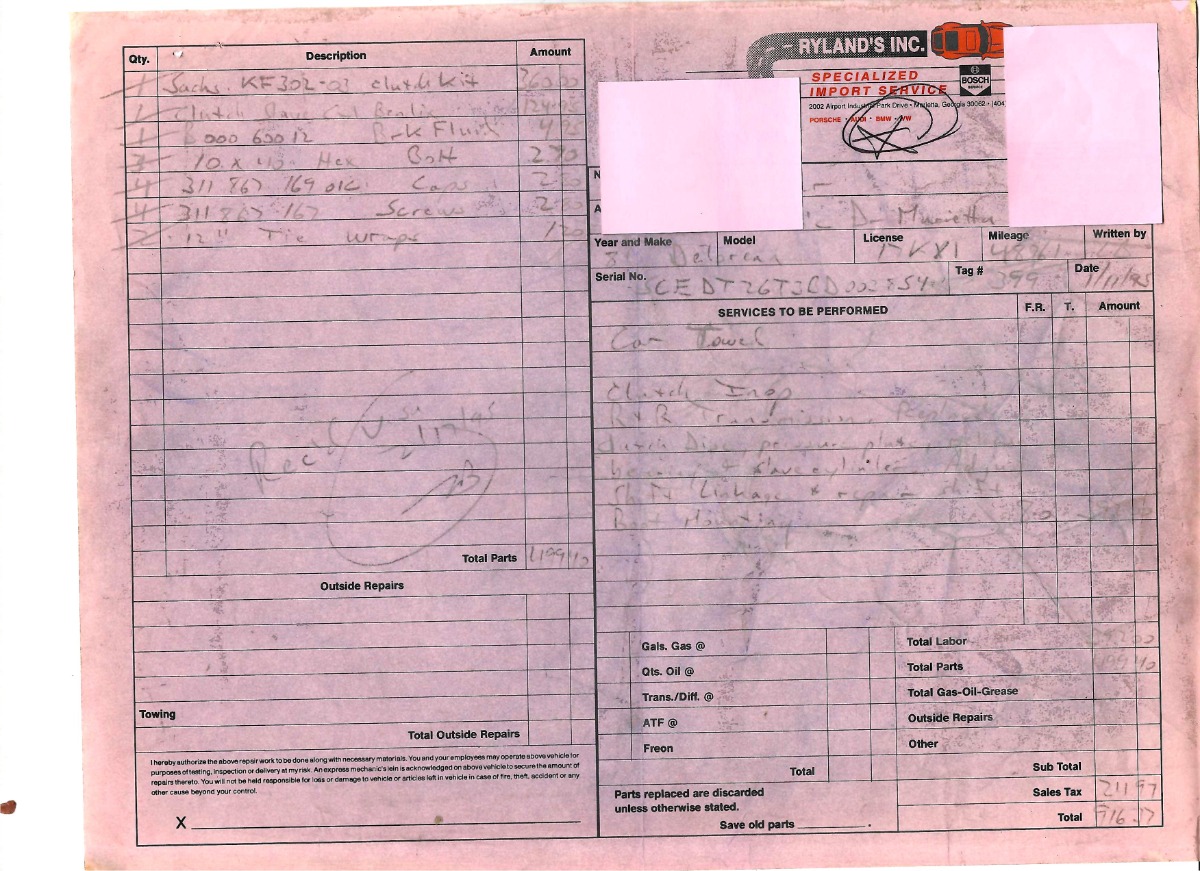 Qty. Description Amount
1 Sachs KF302-02 clutch Kit
1
1 000 600 12 Brk Fluid 4.95
3 10 x 40 Hex Bolt 2.70
4 311 867 169 01C Caps
4 311 867 167 Screws
2 12" Tie wraps
Recd
Total Parts
Outside Repairs
Towing
Total Outside Repairs
I hereby authorize the above repair work to be done along with necessary materials. You and your employees may operate above vehicle for
purposes of testing, inspection or delivery at my risk. An express mechanic's lein is acknowledged on above vehicle to secure the amount of
repairs thereto. You will not be held responsible for loss or damage to vehicle or articles left in vehicle in case of fire, theft, accident or any
other cause beyond your control.
X
RYLAND'S INC.
SPECIALIZED
IMPORT SERVICE
BOSCH
SERVICE
2002 Airport Industrial Park Drive • Marietta, Georgia 30062 • (404
PORSCHE • AUDI • BMW • VW
N
A Dr Marietta
Year and Make Model License Mileage Written by
Delorean
Serial No. SCEDT26T3CD002854 Tag # 399 Date 1/11/95
SERVICES TO BE PERFORMED F.R. T. Amount
Car Towed
Clutch Inop
R & R Transmission, Replaced
clutch Disc, pressure plate,
bearing & slave cylinder. Adjust
Shift Linkage & repair shift
Boot Mounting
Gals. Gas @
Qts. Oil @
Trans./Diff. @
ATF @
Freon
Total
Total Labor
Total Parts
Total Gas-Oil-Grease
Outside Repairs
Other
Sub Total
Sales Tax 21.97
Total
Parts replaced are discarded
unless otherwise stated.
Save old parts